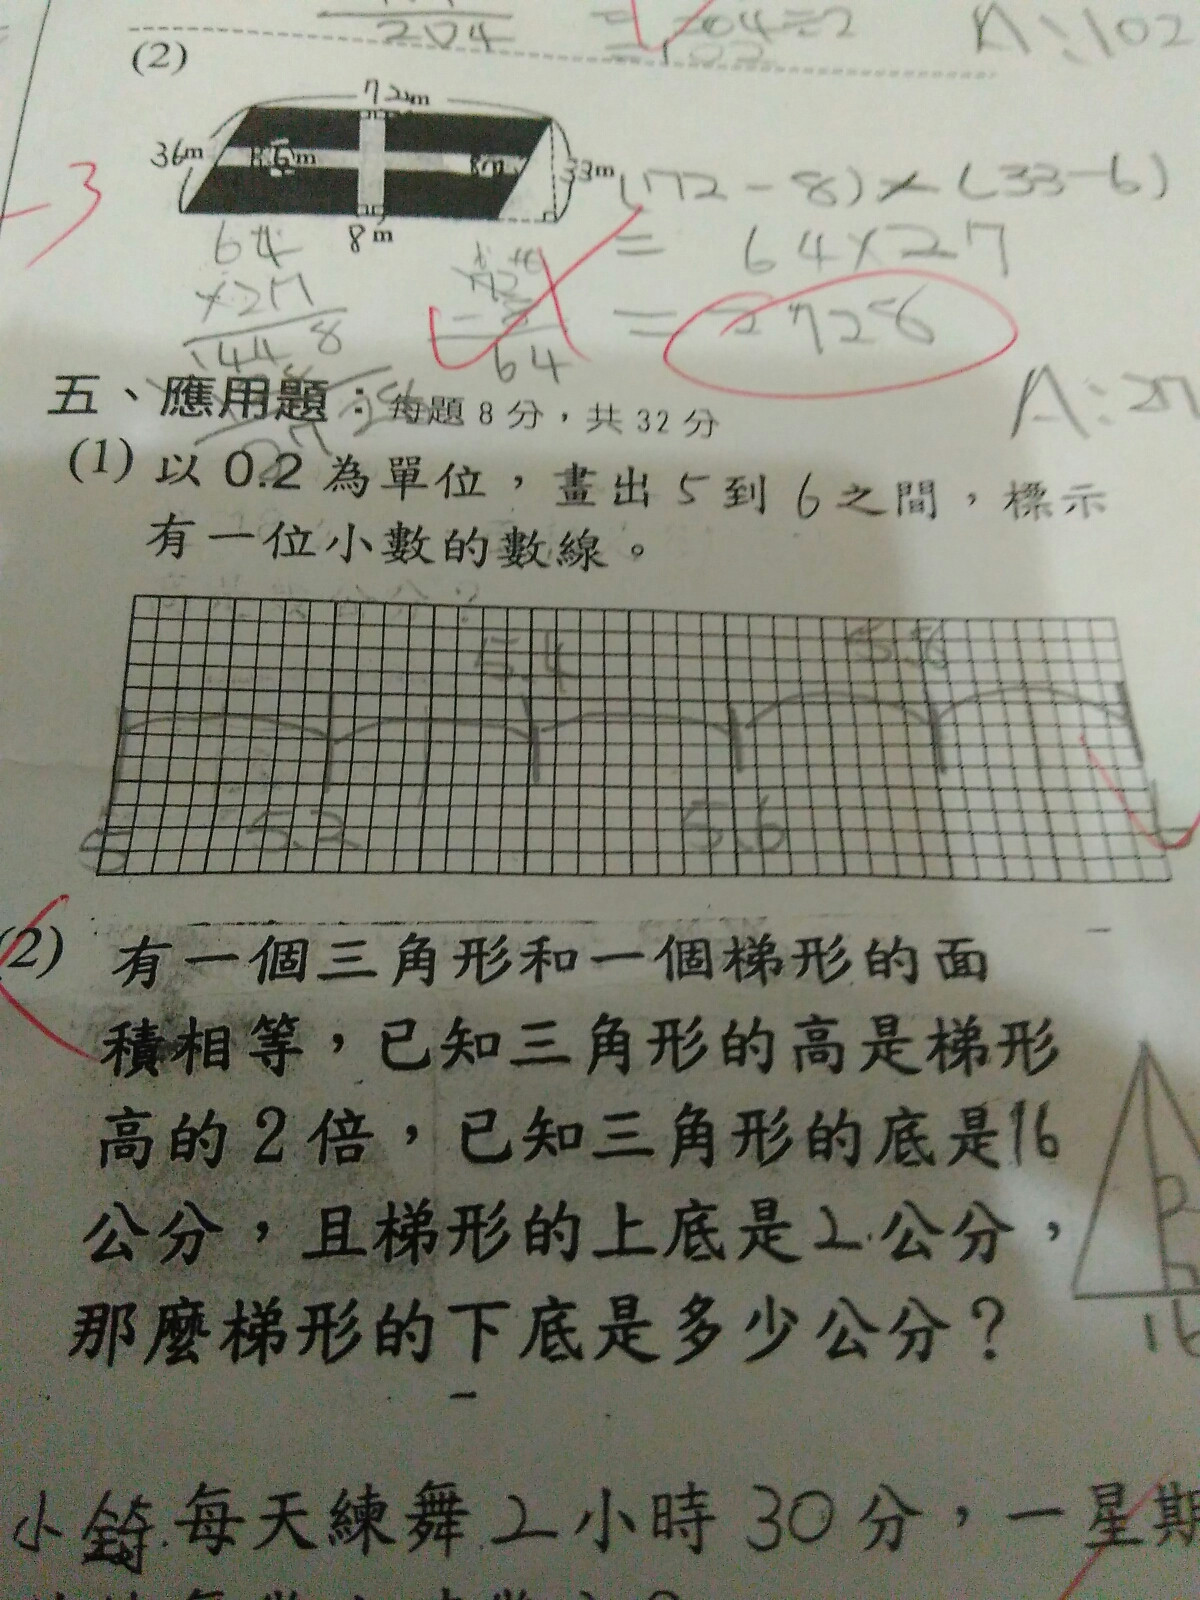 204 = 204÷2
= 102 A:102
(2)
72m
36m 6m 8m 33m
-3
8m
(72-8)×(33-6)
= 64×27
= 2728
64
×27
448
64
五、應用題：每題8分，共32分
(1) 以0.2為單位，畫出5到6之間，標示
有一位小數的數線。
5.4 5.8
5 5.2 5.6
(2) 有一個三角形和一個梯形的面
積相等，已知三角形的高是梯形
高的2倍，已知三角形的底是16
公分，且梯形的上底是2公分，
那麼梯形的下底是多少公分？
2
16
小錡每天練舞2小時30分，一星期